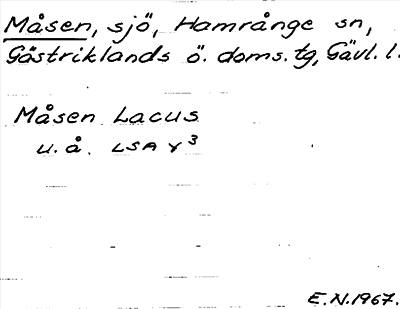 Måsen, sjö, Hamrånge sn,
Gästriklands ö. doms.tg, Gävl. l.
Måsen Lacus
u.å. LSA γ³
E.N.1967.